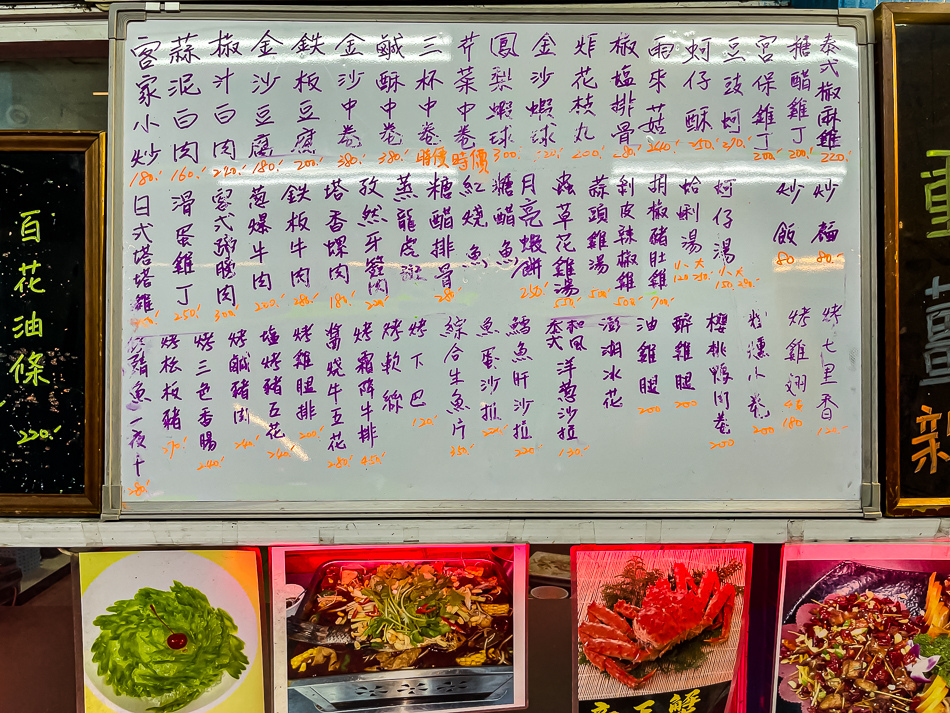 泰式椒麻雞 220.-
糖醋雞丁 200.-
宮保雞丁 200.-
豆豉蚵 270.-
蚵仔酥 250.-
雨來菇 240.-
椒塩排骨 280.-
炸花枝丸 200.-
金沙蝦球
鳳梨蝦球 300.-
芹菜中卷 時價
三杯中卷 時價
鹹酥中卷 380.-
金沙中卷 380.-
鉄板豆腐 200.-
金沙豆腐 180.-
椒汁白肉 220.-
蒜泥白肉 160.-
客家小炒 180.-
炒麵 80.-
炒飯 80
蚵仔湯 小150 大
蛤蜊湯 小120 大250
胡椒豬肚雞 700.-
剝皮辣椒雞 500.-
蒜頭雞湯 500.-
蟲草花雞湯 550.-
月亮蝦餅 250.-
糖醋魚
紅燒魚
糖醋排骨 280.-
蒸龍虎斑
孜然牙籤肉 220.-
塔香螺肉 180.-
鉄板牛肉 280.-
蔥爆牛肉 200.-
客式粥腸肉 300.-
滑蛋雞丁 250.-
日式塔塔雞
烤七里香 120.-
烤雞翅 180
小卷 200
櫻桃鴨肉卷 200
醉雞腿 200
油雞腿 200
澎湖冰花
和風洋蔥沙拉 130.-
鱈魚肝沙拉 220.-
魚蛋沙拉 220.-
綜合生魚片 350.-
烤下巴 120.-
烤軟絲
烤霜降牛排 450.-
醬燒牛五花 280.-
烤雞腿排 200.-
塩烤豬五花 240.-
烤鹹豬肉 240.-
烤三色香腸 240.-
烤松板豬 270.-
鯖魚一夜干 280.-
百花油條 220.-